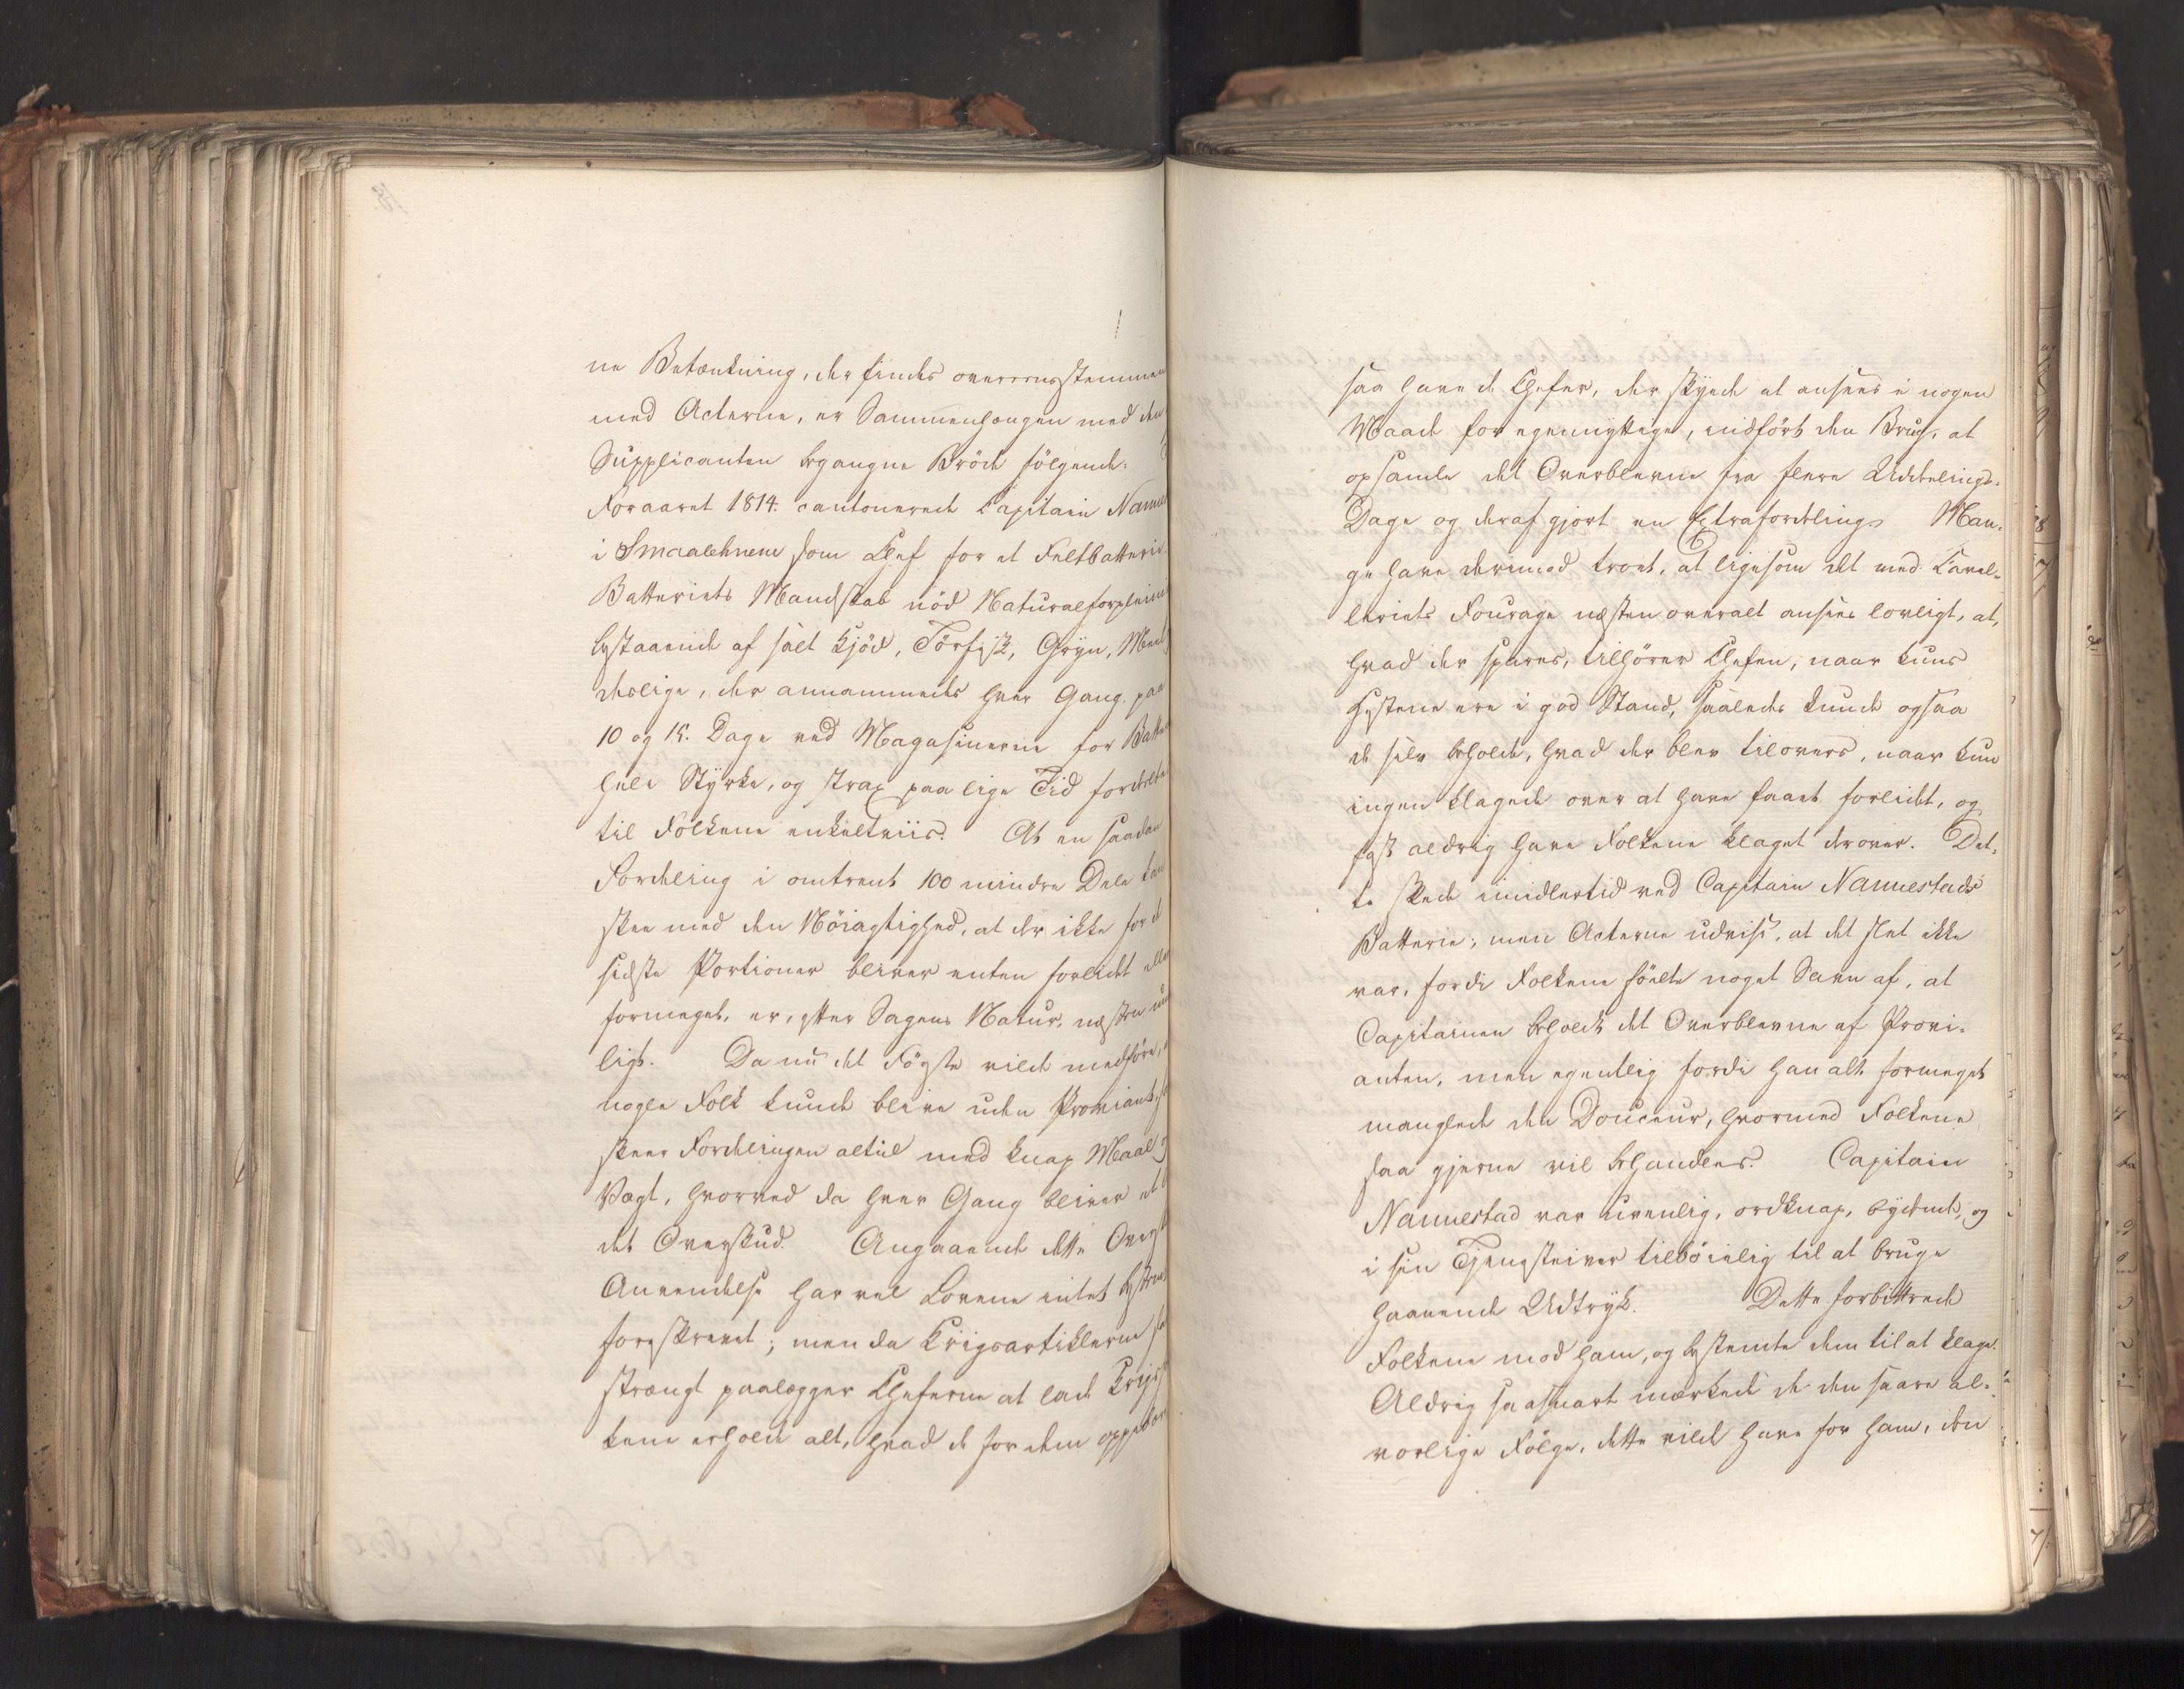 ne Betænkning, der findes overeensstemmen
med Acterne, er Sammenhængen med den
Supplicanten begangne Bröde fölgende:
Foraaret 1814. cantonerede Capitain Nannes
i Smaalehnene som Chef for et Feltbatterie.
Batteriets Mandskab nöd Naturalforpleinin
bestaaende af salt Kjöd, Törfisk, Gryn, Meel
desslige, der annammedes hver Gang paa
10 og 15. Dage ved Magasinerne for Batte
hele Styrke, og strax paa lige Tid fordeelte
til Folkene enkeltviis. At en saadan
Fordeling i omtrent 100 mindre Dele kan
skee med den Nöiagtighed, at der ikke for de
sidste Portioner bliver enten forlidt elle
formeget, er, efter Sagens Natur, næsten um
ligt. Da nu det Förste vilde medföre,
nogle Folk kunde blive uden Proviant,
skeer Fordelingen altid med knap Maal
Vægt, hvorved da hver Gang bliver et
det Overskud. Angaaende dette Overs
Anvendelse har vel Lovene intet bestem
foreskrevet; men da Krigsartiklerne
strængt paalægger Cheferne at lade Krigs
kene erholde alt, hvad de for dem oppebær
saa have de Chefer, der skyede at ansees i nogen
Maade for egennyttige, indfört den Brug, at
opsamle det Overblevne fra flere Uddelings-
Dage og deraf gjort en Extrafordeling. Man-
ge have derimod troet, at ligesom det med Caval-
leriets Fourage næsten overalt ansees lovligt, at,
hvad der spares, tilhörer Chefen, naar kuns
Hestene ere i god Stand, saaledes kunde ogsaa
de selv beholde, hvad der blev tilovers, naar kun
ingen klagede over at have faaet forlidt, og
fast aldrig have Folkene klaget derover. Det-
te skede imidlertid ved Capitain Nannestads
Batterie; men Acterne udvise, at det slet ikke
var, fordi Folkene fölte noget Savn af, at
Capitainen beholdt det Overblevne af Provi-
anten, men egentlig fordi han alt formeget
manglede den Douceur, hvormed Folkene
saa gjerne vil behandles. Capitain
Nannestad var uvenlig, ordknap, bydende, og
i sin Tjenesteiver tilböielig til at bruge
haanende Udtryk. Dette forbittrede
Folkene mod ham, og bestemte dem til at klage.
Aldrig saasnart mærkede de den saare al-
vorlige Fölge, dette vilde have for ham, den